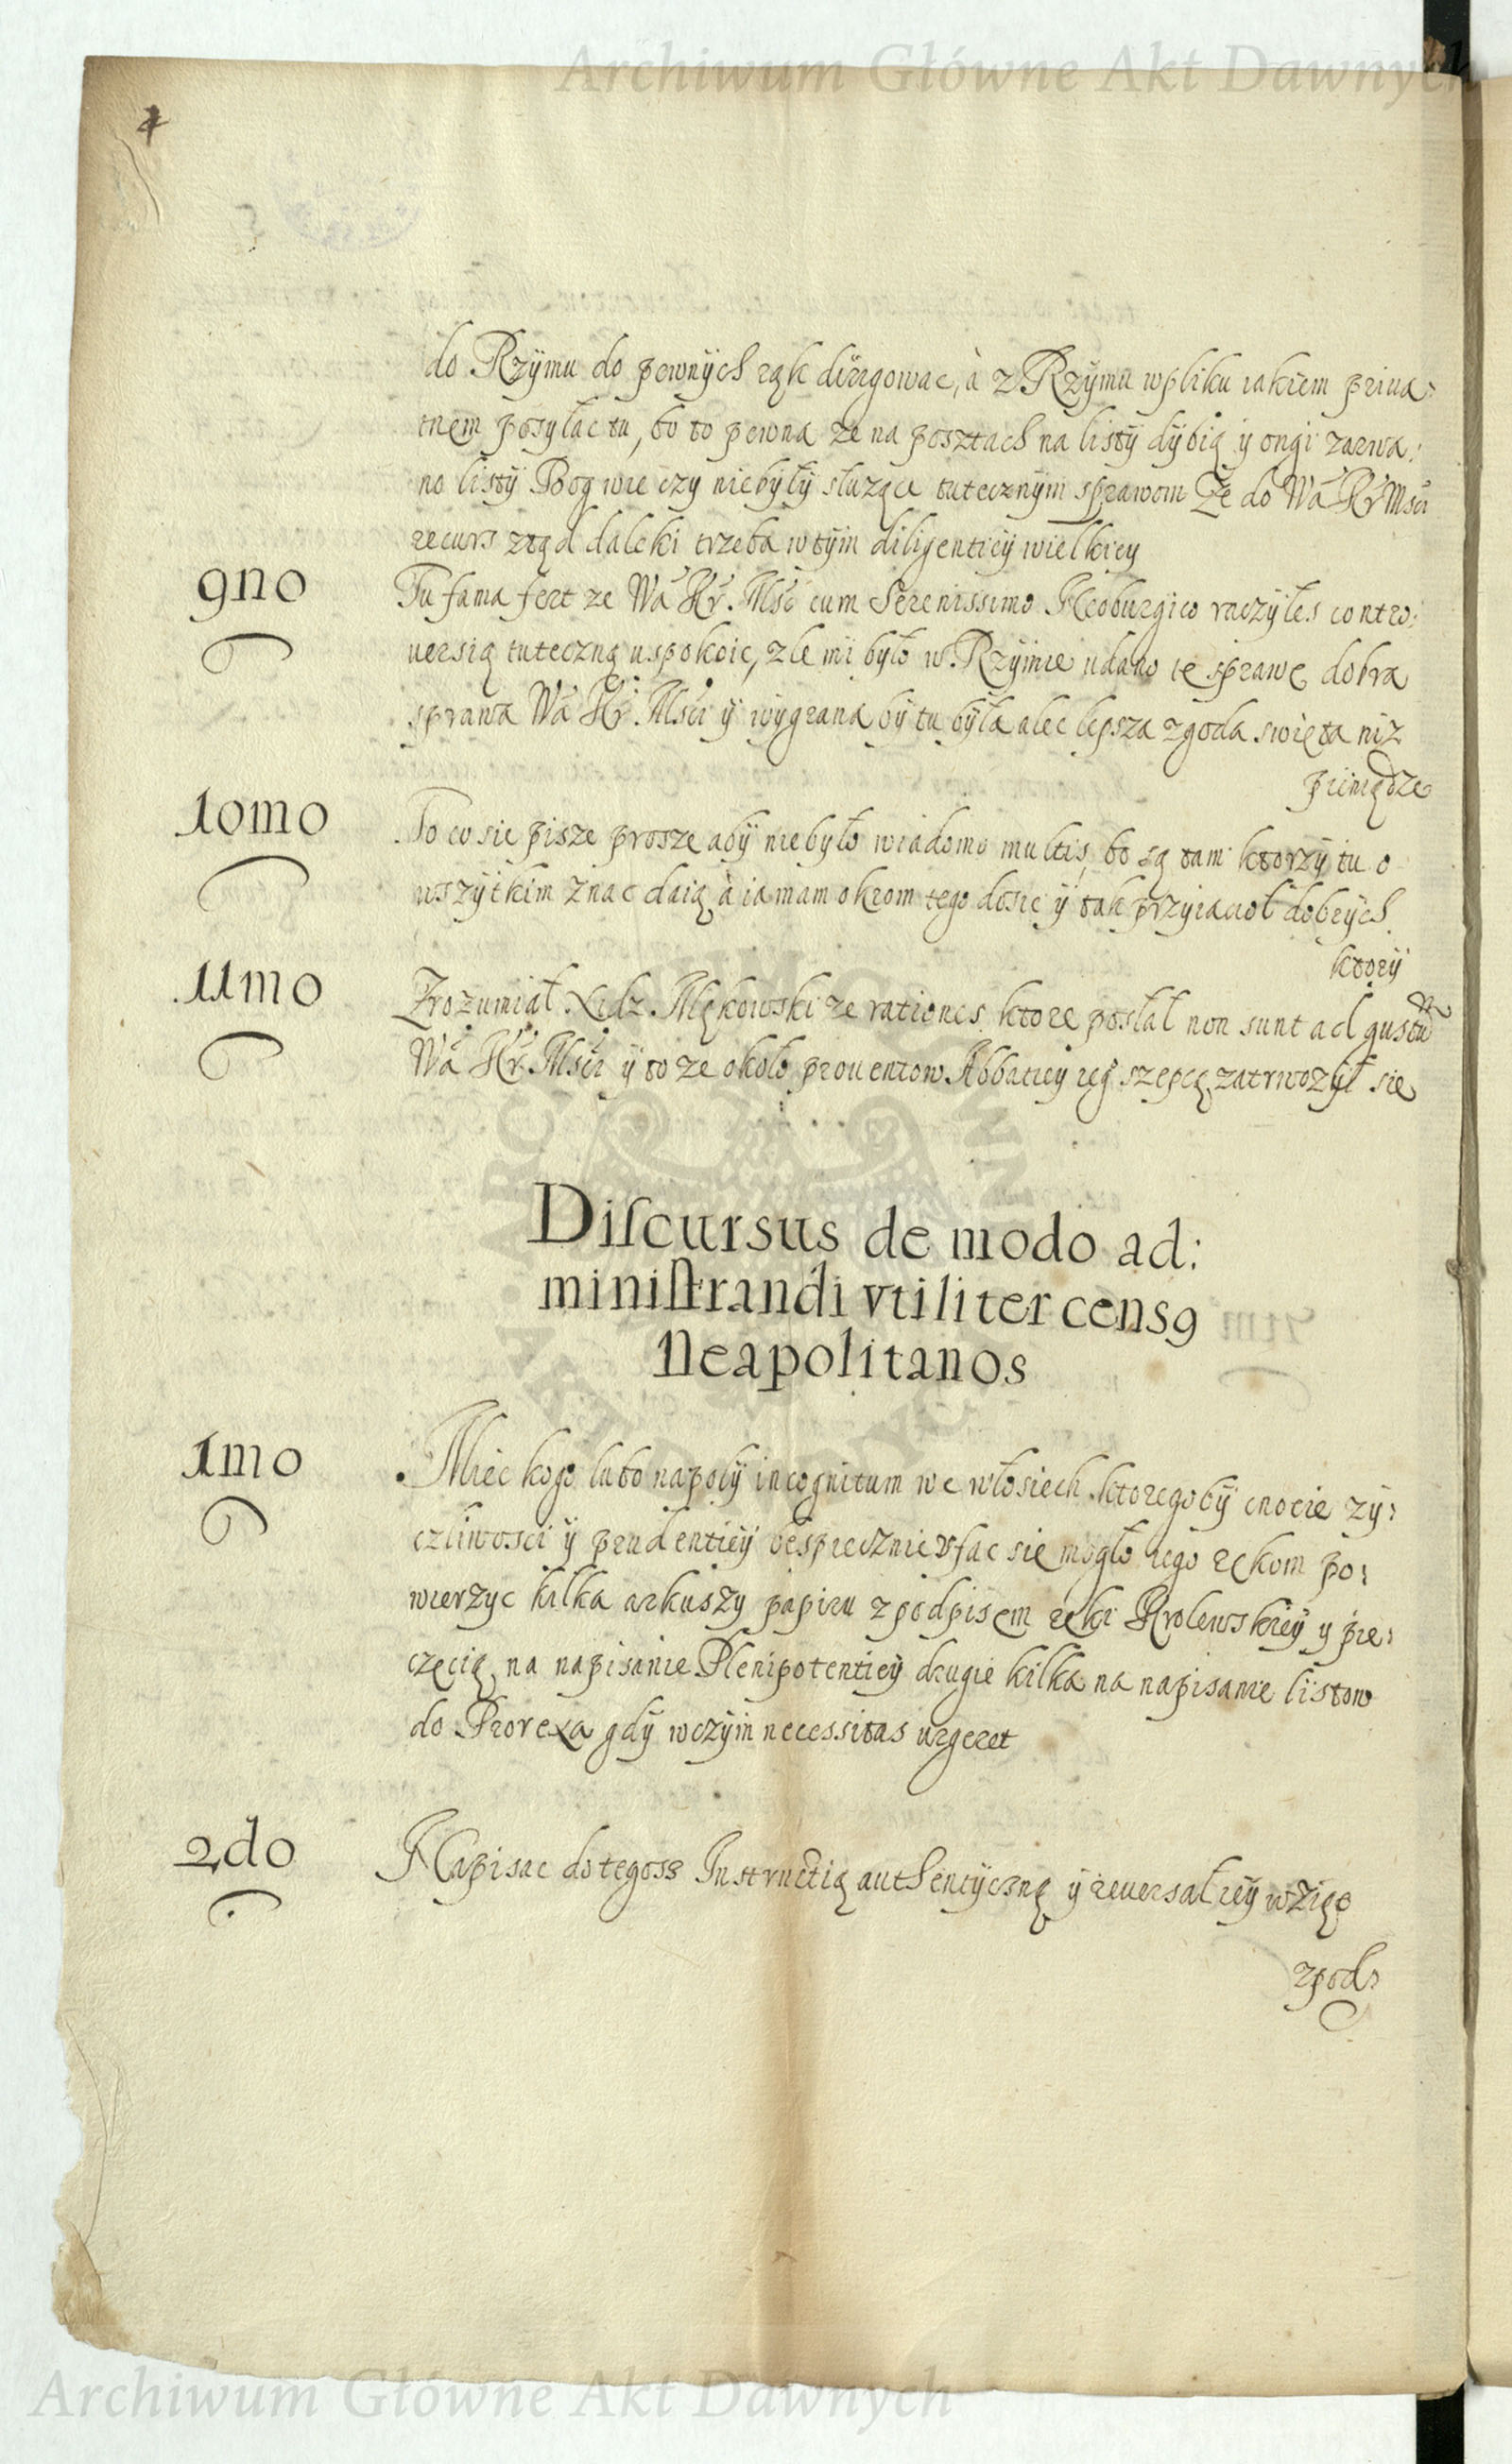 Archiwum Główne Akt Dawnych
4
do Rzÿmu do pewnÿch rąk dirigowac, à z Rzÿmu w pliku iakiem priua:
tnem posyłac tu, bo to pewna ze na posztach na listÿ dÿbią ÿ ongi zarwa:
no listÿ Bog wie czy niebÿłÿ słuząće tutecznÿm sprawom Ze do Wa Kr Msci
recurs ztąd daleki trzeba w tÿm diligentieÿ wielkieÿ
9no
Tu fama fert ze Wa Kr. Msc cum Serenissimo Neoburgico raczÿłes contro:
uersią tuteczną uspokoic, zle mi bÿło w Rzÿmie udano tę sprawę dobra
sprawa Wa Kr. Msci ÿ wÿgrana bÿ tu bÿła alec lepsza zgoda swięta niz
pieniądze
10mo
To co sie pisze prosze abÿ niebÿło wiadomo multis, bo są tam ktorzÿ tu o
wszÿtkim znac daią à ia mam okrom tego dosic ÿ tak przÿiacioł dobrÿch
ktorÿ
11mo
Zrozumiał Xiądz Mąkowski ze rationes ktore posłał non sunt ad gustū
Wa Kr. Msci ÿ to ze około prouentow Abbatieÿ ieÿ szepcą zatrwozÿł się
Diſcursus de modo ad:
miniſtrandi vtiliter cens9
Neapolitanos
1mo
Miec kogo lubo napolÿ incognitum we włosiech ktoregobÿ cnocie zÿ:
czliwosci ÿ prudentieÿ bespiecznie vfac sie mogło iego rękom po:
wierzyc kilka arkuszy papiru z podpisem ręki Krolewskieÿ y pie:
częcią na napisanie Plenipotentieÿ drugie kilka na napisanie listow
do Prorexa gdÿ w czÿm necessitas urgeret
2do
Napisac do tegosz Instructią authentÿczną ÿ reuersał ieÿ wziąc
zpod:
Archiwum Główne Akt Dawnych